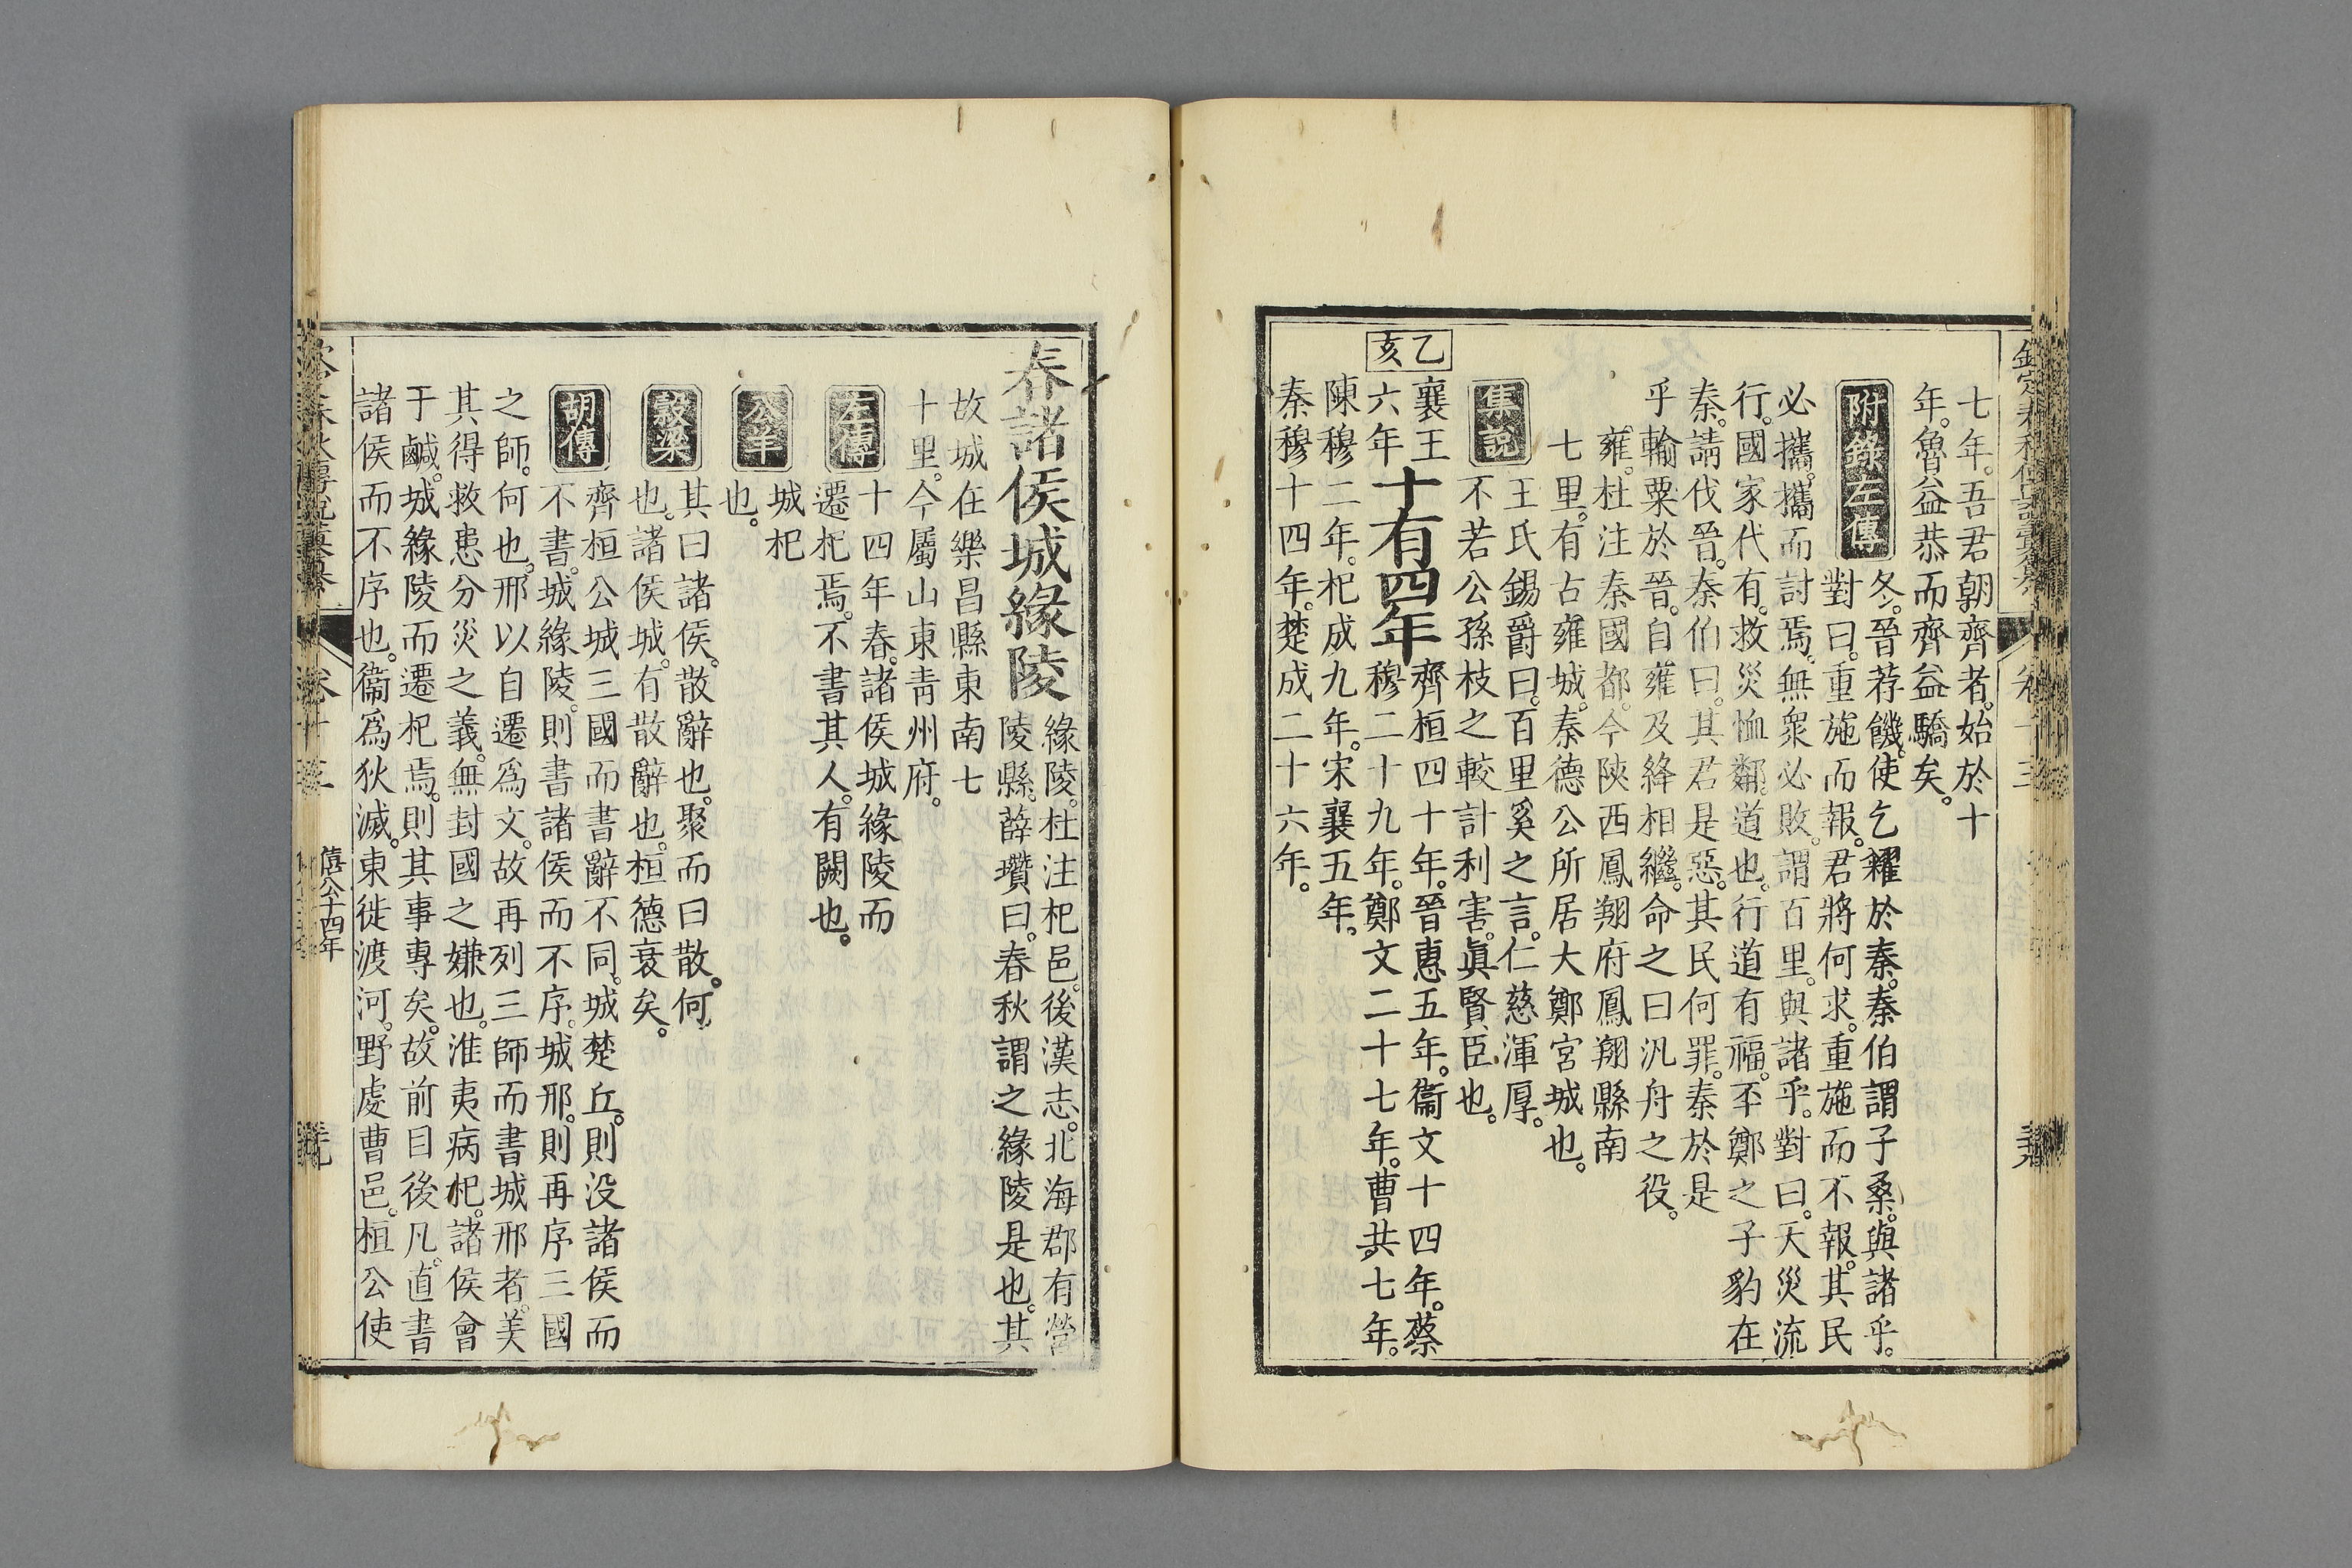 七年。吾君朝齊者。始於十
年。魯益恭而齊益驕矣。
附錄左傳
冬。晉荐饑。使乞糴於秦。秦伯謂子桑。與諸乎。
對曰。重施而報。君將何求。重施而不報。其民
必攜。攜而討焉。無衆必敗。謂百里。與諸乎。對曰。天災流
行。國家代有。救災恤鄰。道也。行道有福。丕鄭之子豹在
秦。請伐晉。秦伯曰。其君是惡。其民何罪。秦於是
乎輸粟於晉。自雍及絳相繼。命之曰汎舟之役。
雍。杜注秦國都。今陝西鳳翔府鳳翔縣南
七里。有古雍城。秦德公所居大鄭宮城也。
集說
王氏錫爵曰。百里奚之言。仁慈渾厚。
不若公孫枝之較計利害。眞賢臣也。
乙亥
襄王六年
十有四年
齊桓四十年。晉惠五年。衞文十四年。蔡
穆二十九年。鄭文二十七年。曹共七年。
陳穆二年。杞成九年。宋襄五年。
秦穆十四年。楚成二十六年。
春諸侯城緣陵
緣陵。杜注杞邑。後漢志。北海郡有營
陵縣。薛瓚曰。春秋謂之緣陵是也。其
故城在樂昌縣東南七
十里。今屬山東青州府。
左傳
十四年春。諸侯城緣陵而
遷杞焉。不書其人。有闕也。
公羊
城杞
也。
穀梁
其曰諸侯。散辭也。聚而曰散。何
也。諸侯城。有散辭也。桓德衰矣。
胡傳
齊桓公城三國而書辭不同。城楚丘。則没諸侯而
不書。城緣陵。則書諸侯而不序。城邢。則再序三國
之師。何也。邢以自遷爲文。故再列三師而書城邢者。美
其得救患分災之義。無封國之嫌也。淮夷病杞。諸侯會
于鹹。城緣陵而遷杞焉。則其事專矣。故前目後凡。直書
諸侯而不序也。衞爲狄滅。東徙渡河。野處曹邑。桓公使
僖公十四年